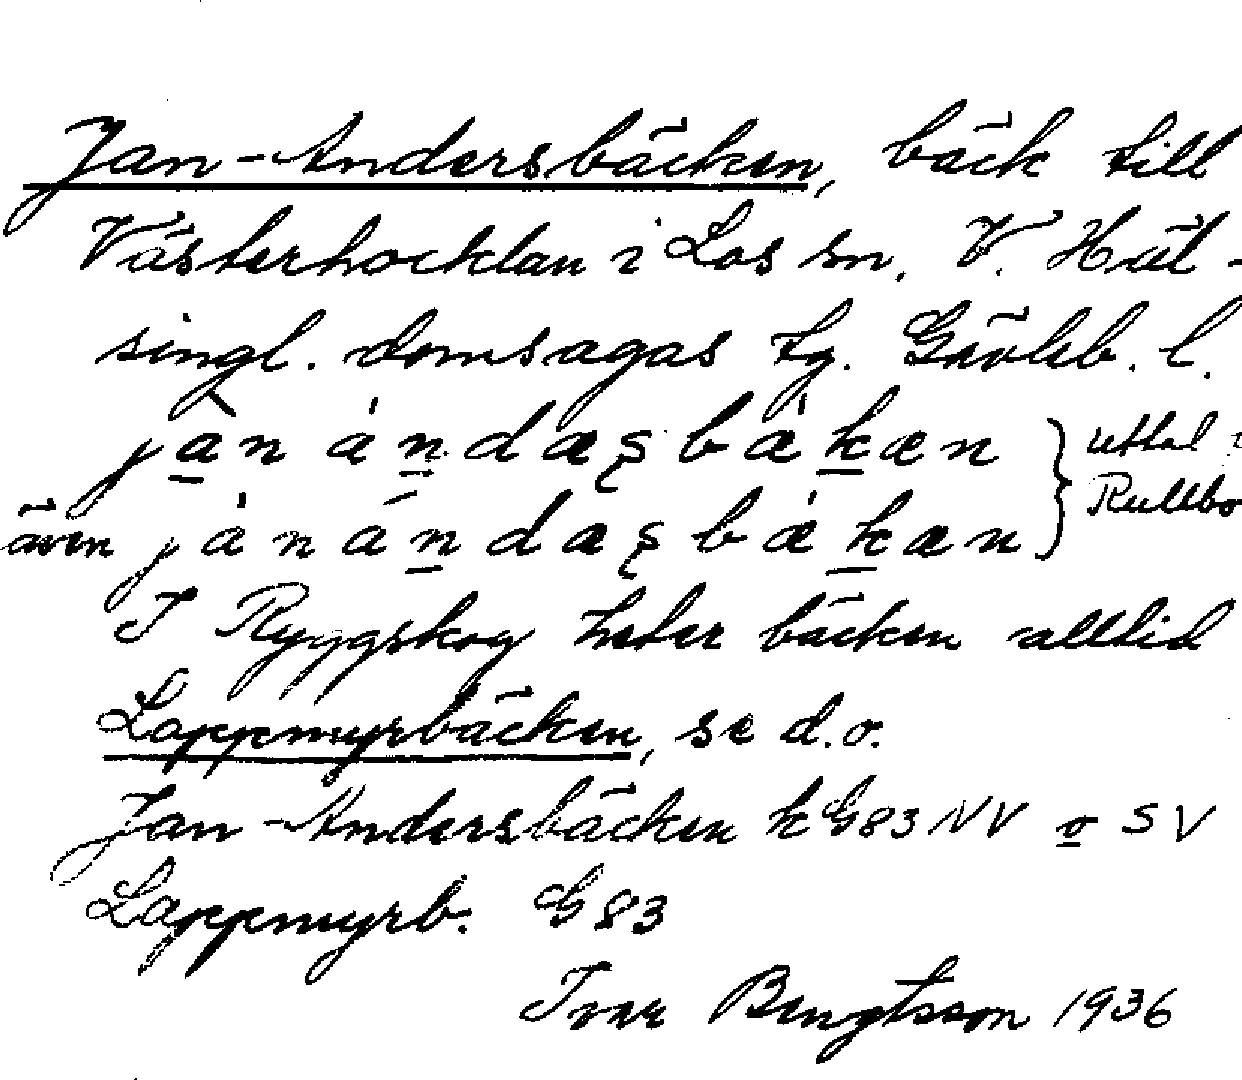 Jan-Andersbäcken, bäck till
Västerhocklan i Los sn, V. Häl-
singl. domsagas tg. Gävleb. l.
jàn ándæʂbàkæn } uttal i
även jàn ándæʂbàkæn } Rullbo
I Ryggskog heter bäcken alltid
Lappmyrbäcken, se d.o.
Jan-Andersbäcken k G83 NV o SV
Lappmyrb. G83
Ivar Bengtsson 1936